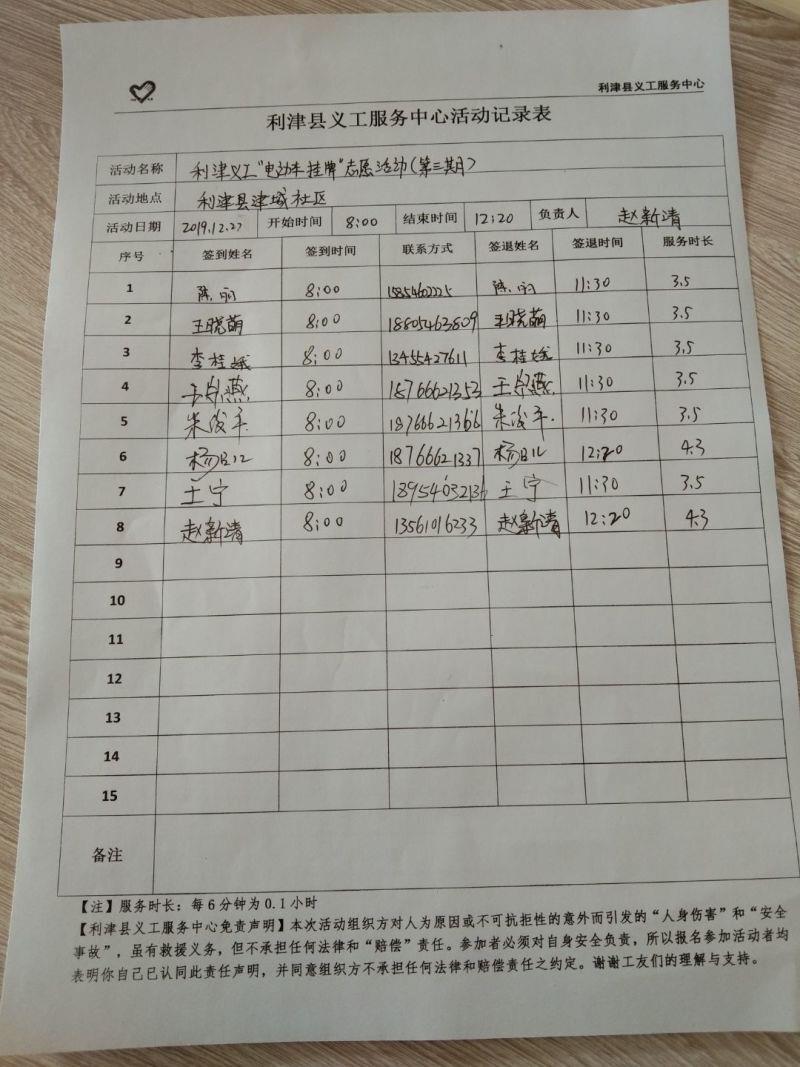 利津县义工服务中心
利津县义工服务中心活动记录表
活动名称 利津义工"电动车挂牌"志愿活动(第三期)
活动地点 利津县津城社区
活动日期 2019.12.27 开始时间 8:00 结束时间 12:20 负责人 赵新清
序号 签到姓名 签到时间 联系方式 签退姓名 签退时间 服务时长
1 陈丽 8:00 陈丽 11:30 3.5
2 王晓萌 8:00 18805463809 王晓萌 11:30 3.5
3 李桂娥 8:00 13455427611 李桂娥 11:30 3.5
4 8:00 18766621353 11:30 3.5
5 朱俊平 8:00 18766621366 朱俊平. 11:30 3.5
6 8:00 18766621337 12:20 4.3
7 王宁 8:00 18954032136 王宁 11:30 3.5
8 赵新清 8:00 13561016233 赵新清 12:20 4.3
9
10
11
12
13
14
15
备注
【注】服务时长：每6分钟为0.1小时
【利津县义工服务中心免责声明】本次活动组织方对人为原因或不可抗拒性的意外而引发的“人身伤害”和“安全
事故”，虽有救援义务，但不承担任何法律和“赔偿”责任。参加者必须对自身安全负责，所以报名参加活动者均
表明你自己已认同此责任声明，并同意组织方不承担任何法律和赔偿责任之约定。谢谢工友们的理解与支持。